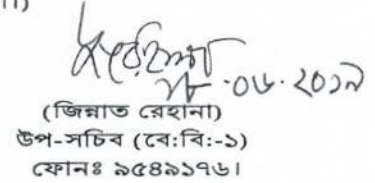 ১৮.০৬.২০১৯
(জিন্নাত রেহানা)
উপ-সচিব (বে:বি:-১)
ফোনঃ ৯৫৪৯১৭৬।